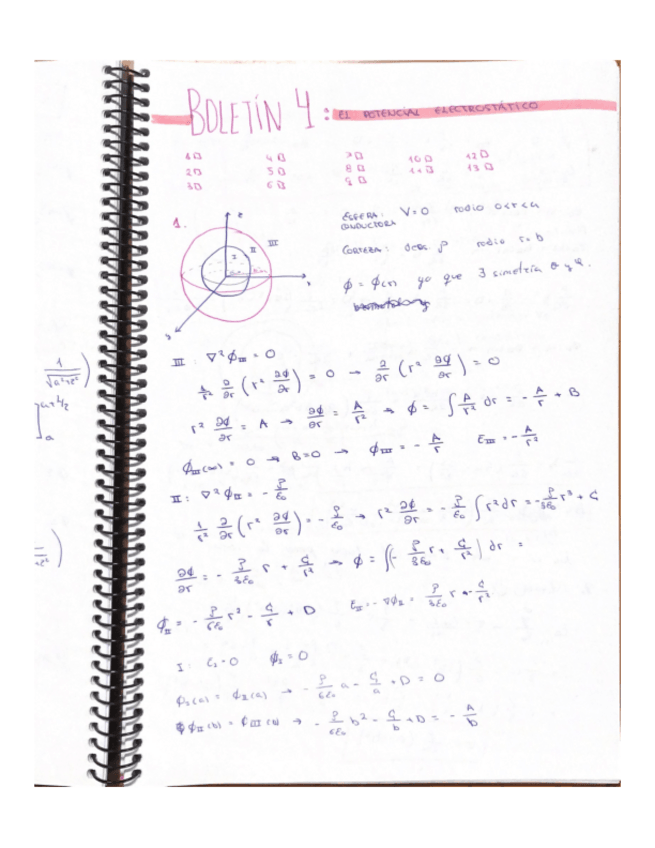 BOLETÍN 4: EL POTENCIAL ELECTROSTÁTICO
1□ 4□ 7□ 10□ 12□
2□ 5□ 8□ 11□ 13□
3□ 6□ 9□
1.
z
I II III
ESFERA CONDUCTORA: V=0 radio 0<r<a
CORTEZA: dens. ρ radio r=b
φ = φ(r) ya que ∃ simetría θ y φ.
III: ∇²φ_III = 0
1/r² ∂/∂r (r² ∂φ/∂r) = 0 → ∂/∂r (r² ∂φ/∂r) = 0
r² ∂φ/∂r = A → ∂φ/∂r = A/r² → φ = ∫ A/r² dr = - A/r + B
φ_III(∞) = 0 → B=0 → φ_III = - A/r E_III = - A/r²
II: ∇²φ_II = - ρ/ε₀
1/r² ∂/∂r (r² ∂φ/∂r) = - ρ/ε₀ → r² ∂φ/∂r = - ρ/ε₀ ∫ r² dr = - ρ/3ε₀ r³ + C
∂φ/∂r = - ρ/3ε₀ r + C/r² → φ = ∫(- ρ/3ε₀ r + C/r²) dr =
φ_II = - ρ/6ε₀ r² - C/r + D E_II = -∇φ_II = ρ/3ε₀ r - C/r²
I: E_I = 0 φ_I = 0
φ_I(a) = φ_II(a) → - ρ/6ε₀ a² - C/a + D = 0
φ_II(b) = φ_III(b) → - ρ/6ε₀ b² - C/b + D = - A/b